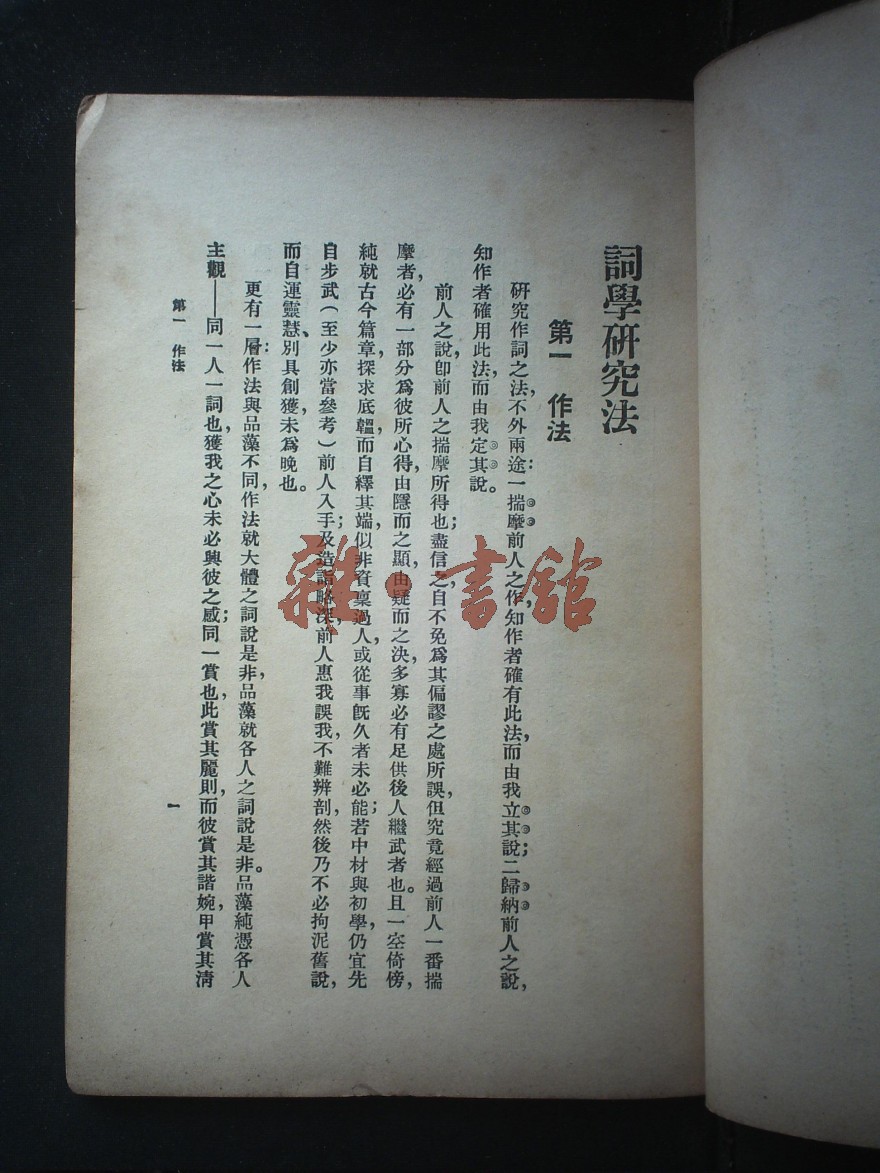 詞學研究法
第一 作法
研究作詞之法，不外兩途：一揣摩前人之作，知作者確有此法，而由我立其說；二歸納前人之說，
知作者確用此法，而由我定其說。
前人之說，卽前人之揣摩所得也；盡信之，自不免爲其偏謬之處所誤，但究竟經過前人一番揣
摩者，必有一部分爲彼所心得，由隱而之顯，由疑而之決，多寡必有足供後人繼武者也。且一空倚傍，
純就古今篇章，探求底韞，而自繹其端，似非資稟過人，或從事旣久者未必能；若中材與初學，仍宜先
自步武（至少亦當參考）前人入手；及造詣略深，前人惠我誤我，不難辨剖，然後乃不必拘泥舊說，
而自運靈慧、別具創獲，未爲晚也。
更有一層：作法與品藻不同，作法就大體之詞說是非，品藻就各人之詞說是非。品藻純憑各人
主觀——同一人一詞也，獲我之心，未必與彼之感；同一賞也，此賞其麗則，而彼賞其諧婉，甲賞其清
第一 作法
一
雜·書館